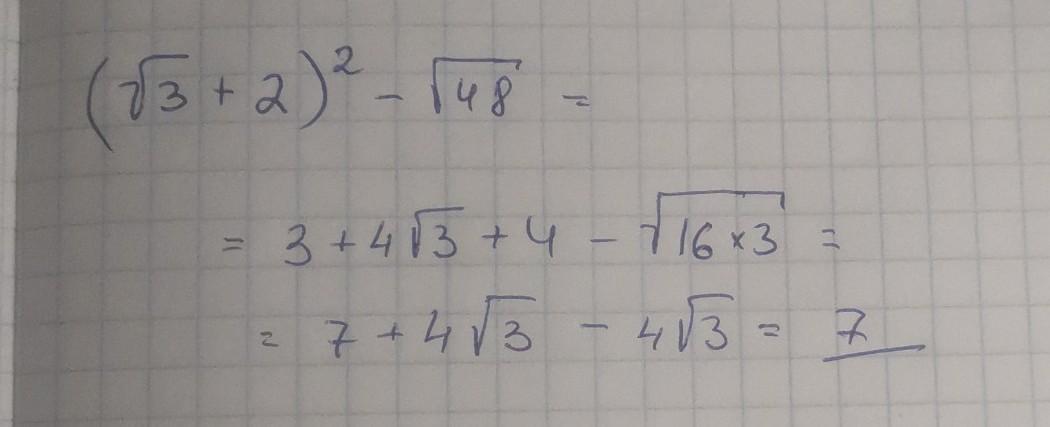 (√3 + 2)² - √48 =
= 3 + 4√3 + 4 - √16×3 =
= 7 + 4√3 - 4√3 = 7